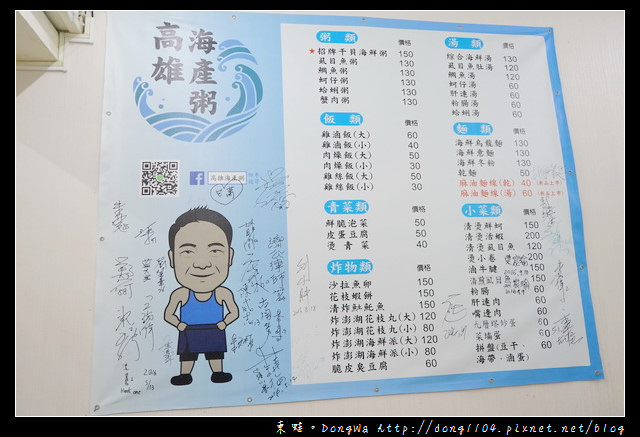 高雄
海產粥
高雄海產粥
粥 類 價格
★招牌干貝海鮮粥 150
虱目魚粥 130
鯛魚粥 130
蚵仔粥 130
蛤蜊粥 130
蟹肉粥 130
飯 類 價格
雞滷飯(大) 60
雞滷飯(小) 40
肉燥飯(大) 50
肉燥飯(小) 30
雞絲飯(大) 50
雞絲飯(小) 30
青菜類 價格
鮮脆泡菜 50
皮蛋豆腐 50
燙青菜 40
炸物類 價格
沙拉魚卵 150
花枝蝦餅 150
清炸魟魚 150
炸澎湖花枝丸(大) 120
炸澎湖花枝丸(小) 80
炸澎湖海鮮派(大) 120
炸澎湖海鮮派(小) 80
脆皮臭豆腐 60
湯 類 價格
綜合海鮮湯 130
虱目魚肚湯 120
鯛魚湯 120
蚵仔湯 60
肝連湯 60
粉腸湯 60
蛤蜊湯 60
麵 類 價格
海鮮烏龍麵 130
海鮮意麵 130
海鮮冬粉 130
乾麵 50
麻油麵線(乾) 40
麻油麵線(湯) 60
小菜類 價格
清燙鮮蚵 200
清燙活蝦 200
清燙虱目魚 120
燙小卷
滷牛腱 150
清煎虱目魚
粉腸
肝連肉
嘴邊肉
九層塔炒蛋
菜埔蛋
拼盤(豆干、
海帶、滷蛋)
東蛙。DongWa http://dong1104.pixnet.net/blog